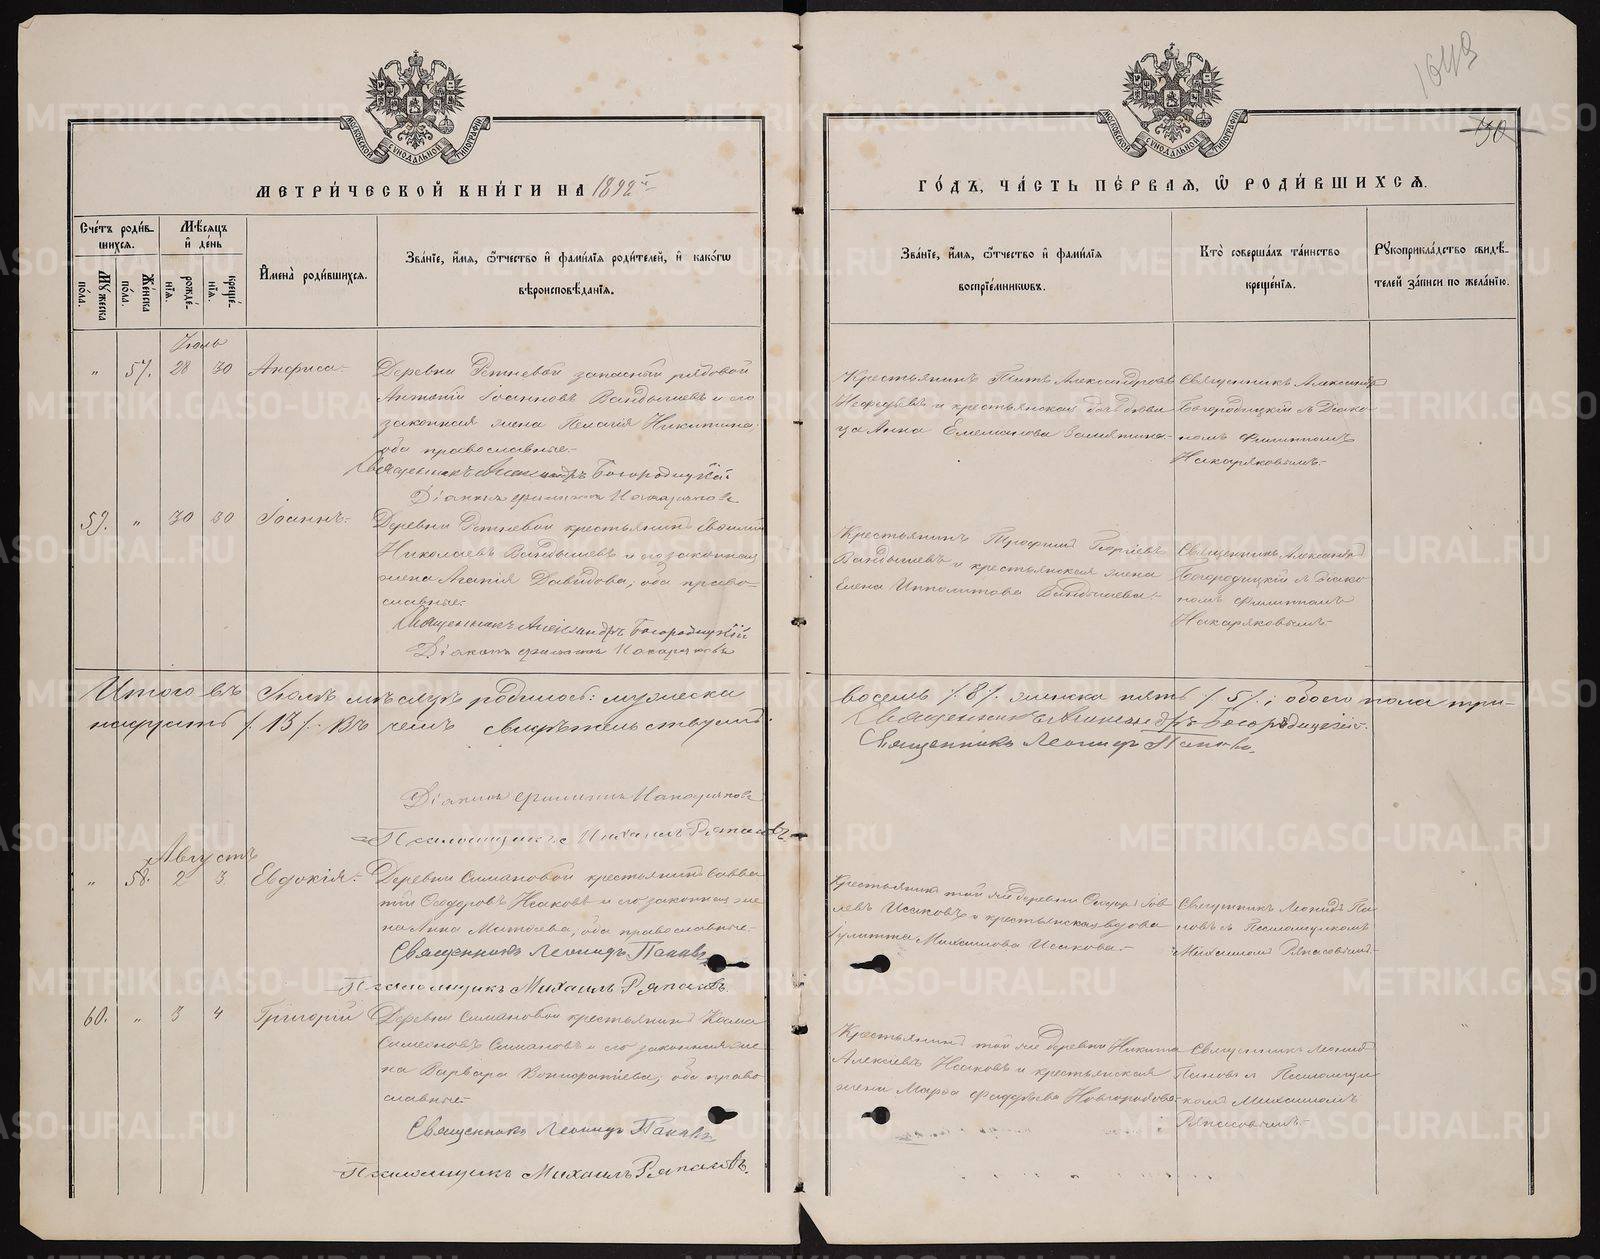 1643
150
МЕТРИ́ЧЕСКОЙ КНИ́ГИ НА 1892 й
ГО́ДЪ, ЧА́СТЬ ПЕ́РВАЯ, Ѡ РОДИ́ВШИХСЯ.
Сче́тъ роди́в-
шихся.
Мѣ́сяцъ
и҆ де́нь
Му́жеска
по́ла.
Же́нска
по́ла.
рожде́-
нїя.
креще́-
нїя.
И҆мена̀ роди́вшихся.
Зва́нїе, и҆́мя, ѻ҆́тчество и҆ фами́лїя роди́телей, и҆ како́гѡ
вѣроисповѣ́данїя.
Зва́нїе, и҆́мя, ѻ҆́тчество и҆ фами́лїя
воспрїе́мниковъ.
Кто̀ соверша́лъ та́инство
креще́нїя.
Рꙋкоприкла́дство свидѣ́-
телей за́писи по жела́нїю.
Іюль
„ 57. 28 30 Анфиса.-
Деревни Ретневой запасный рядовой
Антоній Іоанновъ Вандышевъ и его
законная жена Пелагія Никитина,
оба православные.-
Священникъ Александръ Богородицкій
Діаконъ Филиппъ Накаряковъ
Крестьянинъ Титъ Александровъ
и крестьянская
Анна
Священникъ Александръ
Богородицкій съ Діако-
номъ Филиппомъ
Накаряковымъ.-
59. „ 30 30 Іоаннъ.-
Деревни Ретневой крестьянинъ Василій
Николаевъ Вандышевъ и его законная
жена Агапія Давидова, оба право-
славные.-
Священникъ Александръ Богородицкій
Діаконъ Филиппъ Накаряковъ
Крестьянинъ Трофимъ Георгіевъ
Вандышевъ и крестьянская жена
Елена Ипполитова Вандышева.-
Священникъ Александръ
Богородицкій съ Діако-
номъ Филиппомъ
Накаряковымъ.-
Итого въ Іюлѣ мѣсяцѣ родилось: мужеска восемь /8/. женска пять /5/.; обоего пола три-
надцать /13/. Въ чемъ свидѣтельствуемъ:
Священникъ Александръ Богородицкій.
Священникъ Леонидъ Паповъ.
Діаконъ Филиппъ Накаряковъ
Псаломщикъ Михаилъ Ряпасовъ.
Августъ
„ 58. 2 3 Евдокія.-
Деревни Симановой крестьянинъ Савва-
тій Ѳеодоровъ Исаковъ и его законная же-
на Анна Матѳеева, оба православные.-
Священникъ Леонидъ Паповъ
Псаломщикъ Михаилъ Ряпасовъ
Крестьянинъ той же деревни
Исаковъ и крестьянская вдова
Іулитта Михаилова Исакова.-
Священникъ Леонидъ Па-
повъ съ Псаломщикомъ
Михаиломъ Ряпасовымъ.-
60. „ 3 4 Григорій
Деревни Симановой крестьянинъ Косма
Симеоновъ Симановъ и его законная же-
на Варвара Вонифатіева, оба право-
славные.-
Священникъ Леонидъ Паповъ
Псаломщикъ Михаилъ Ряпасовъ.
Крестьянинъ той же деревни Никита
Алексіевъ Исаковъ и крестьянская
жена Марѳа Фаддѣева Новгородова.
Священникъ Леонидъ
Паповъ съ Псаломщи-
комъ Михаиломъ
Ряпасовымъ.-
METRIKI.GASO-URAL.RU